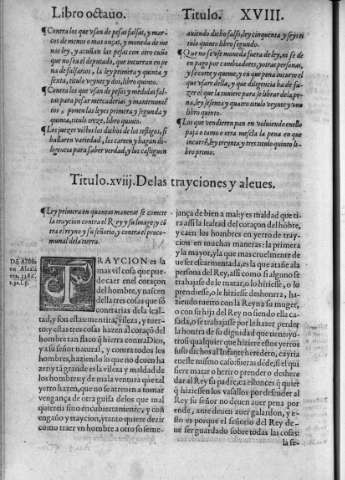 Libro octauo. Titulo. XVIII.
¶ Contra los que vsan de pesas falsas, y mar-
cos de menos o mas onças, y moneda de me
nos ley, y acusan las pesas con otro cuño
que no sea el deputado, que incurren en pe
na de falsarios, la ley primera y quinta y
sexta, titulo veynte y dos, libro quinto.
¶ Contra los que vsan de pesos y medidas fal-
tas para pesar mercadurias y mantenimiẽt
os, ponen las leyes primera y segunda y
quinta, titulo treze, libro quinto.
¶ Los juezes vistos los dichos de los testigos, si
hallaren variedad, los careen y hagan di-
ligencia para saber verdad, y los castiguen
auiendo dicho falso, ley cinquenta y seys ti
tulo quinto libro segundo.
¶ Que no se saque moneda fuera de ley, ni se de
en pago por cambiadores, y otras personas,
y se corte y queme, y en que pena incurre el
que vsare della, y que diligencia ha de fa-
zer el que la tuuiere para se librar de la pe-
na, ley sesenta y quatro titulo veynte y vno
libro quinto.
¶ Los que vendieren pan en boluiendo
paja o tamo o otra mezcla la pena en que
incurrẽ, ley treynta y tres titulo quinto li-
bro primo.
Titulo. xviij. De las trayciones y aleues.
¶ Ley primera en quantas maneras se comete
la traycion contra el Rey y su Imagẽ, y cõ
tra el reyno y su señorio, y contra el proco-
munal de la tierra.
TRAYCION es la
mas vil cosa que pue-
de caer en el coraçon
del hombre, y nascen
della tres cosas que sõ
contrarias de la leal-
tad, y son estas mentira, vileza, y tuer-
to: y estas tres cosas hazen al coraçõ del
hombre tan flaco q̃ hierra contra Dios,
y a su señor natural, y contra todos los
hombres, haziendo lo que no deuen ha
zer: y tã grande es la vileza y maldad de
los hombres y de mala ventura que tal
yerro hazen, que no se atreuen a tomar
vengança de otra guisa delos que mal
quieren sino encubiertamente, y con
engaño y traycion, y tanto quiere dezir
como traer vn hombre a otro so seme-
jança de bien a mal: y es maldad que ti-
ra assi la lealtad del coraçon del hõbre,
y caen los hombres en yerro de tray-
cion en muchas maneras: la primera
y la mayor, y la que mas cruelmente de
ue ser escarmentada, es la que atañe ala
persona del Rey, assi como si alguno se
trabajasse de le matar, o lo hiriesse, o lo
prendiesse, o le hiziesse deshonra, ha-
ziendo tuerto con la Reyna su muger,
o con su hija del Rey no siendo ella ca-
sada, o se trabajasse por la hazer perder
la honrra de su dignidad que tiene: y o-
trosi qualquier que hiziere estos yerros
susodichos al Infante heredero, caeria
en este mismo caso: fueras dẽde, si el qui
siere matar o herir o prender o deshere
dar al Rey su padre, ca estonces q̃ quier
q̃ hiziessen los vassallos por defender al
Rey su señor no deuen auer pena por
ende, ante deuen auer galardon, y es-
to es porque el señorio del Rey de-
ue ser guardado sobre todas las cosas:
la se-